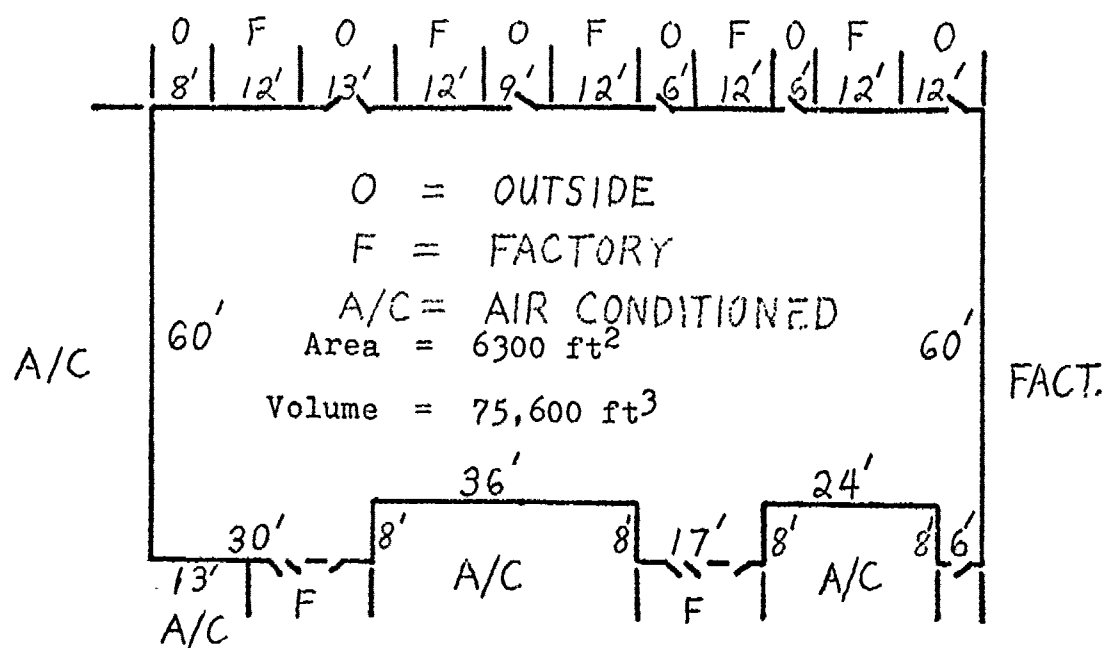 O F O F O F O F O F O
8' 12' 13' 12' 9' 12' 6' 12' 6' 12' 12'
O = OUTSIDE
F = FACTORY
A/C = AIR CONDITIONED
60' Area = 6300 ft² 60'
A/C FACT.
Volume = 75,600 ft³
36' 24'
30' 8' 8' 17' 8' 8' 6'
13' F A/C F A/C
A/C